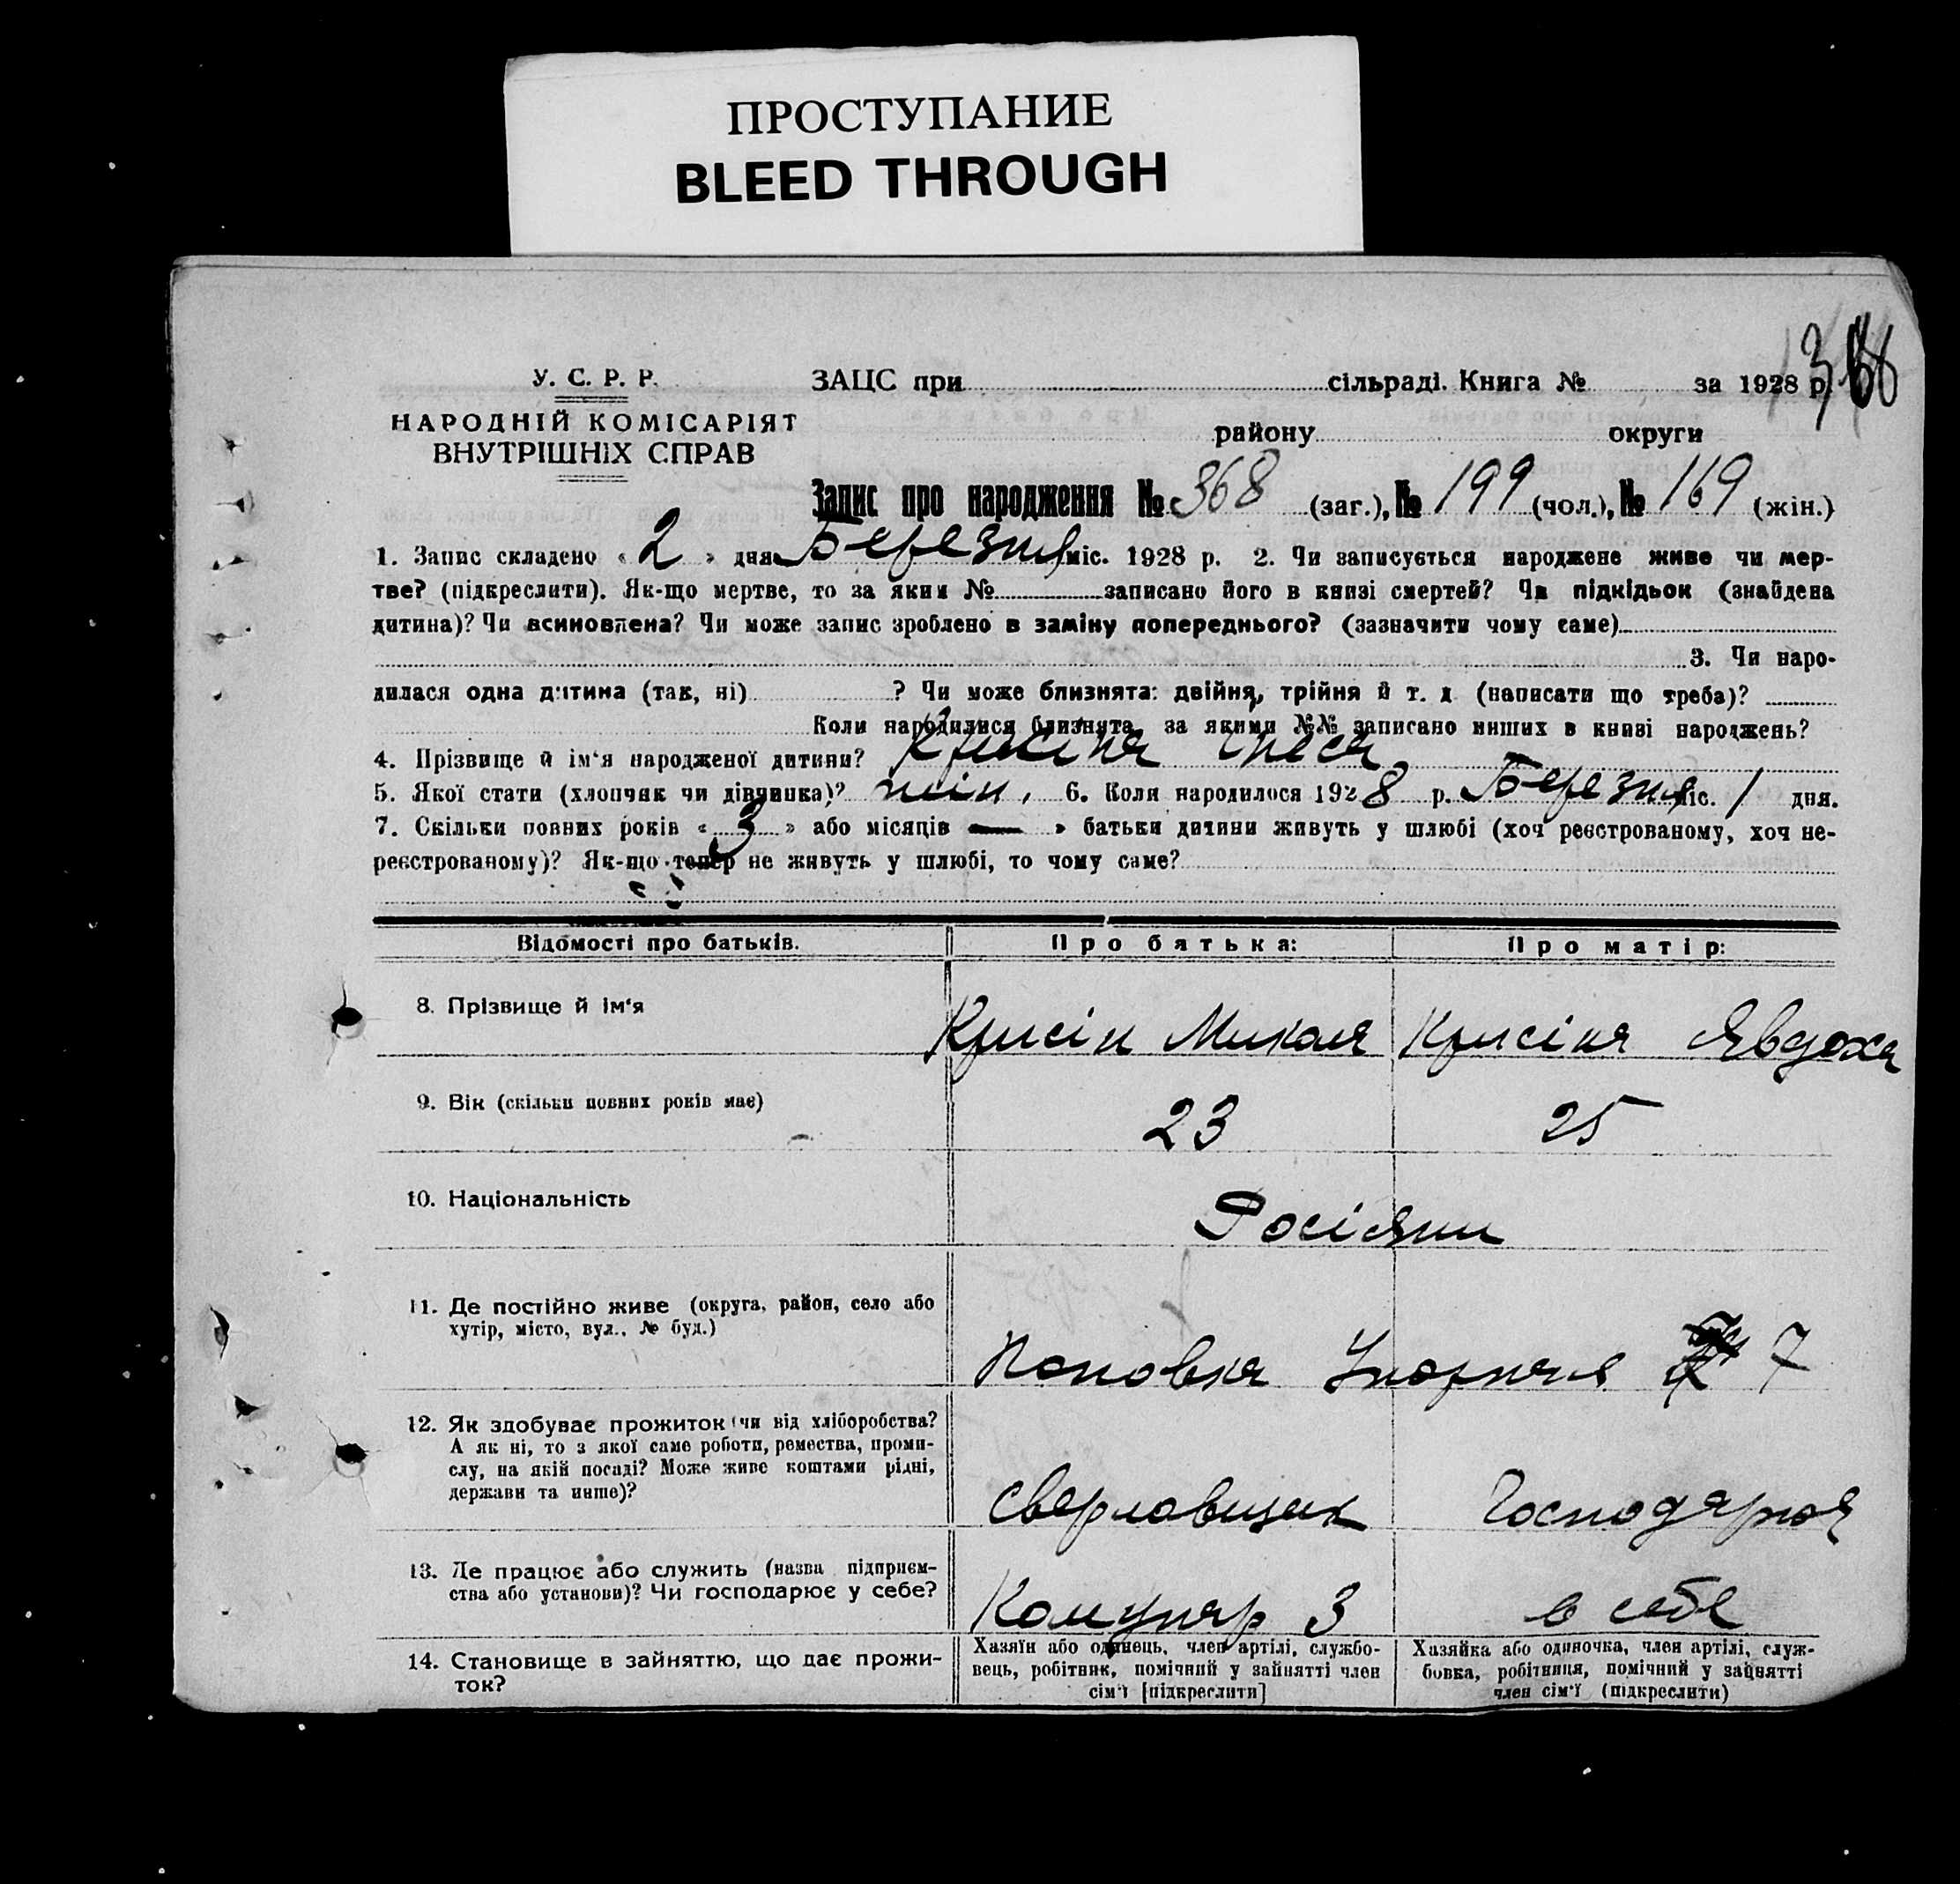 ПРОСТУПАНИЕ
BLEED THROUGH
У. С. Р. Р.
НАРОДНІЙ КОМІСАРІЯТ
ВНУТРІШНІХ СПРАВ
ЗАЦС при сільраді. Книга № за 1928 р.
району округи
Запис про народження № 368 (заг.), № 199 (чол.), № 169 (жін.)
1. Запис складено « 2 » дня Березня міс. 1928 р. 2. Чи записується народжене живе чи мер-
тве? (підкреслити). Як-що мертве, то за яким № записано його в книзі смертей? Чи підкідьок (знайдена
дитина)? Чи всиновлена? Чи може запис зроблено в заміну попереднього? (зазначити чому саме)
3. Чи наро-
дилася одна дитина (так, ні) ? Чи може близнята: двійня, трійня й т. д (написати що треба)?
Коли народилися близнята за якими №№ записано инших в книзі народжень?
4. Прізвище й ім'я народженої дитини? Крисіна
5. Якої стати (хлопчик чи дівчинка)? жін. 6. Коли народилося 1928 р. Березня міс. 1 дня.
7. Скільки повних років « 3 » або місяців — » батьки дитини живуть у шлюбі (хоч реєстрованому, хоч не-
реєстрованому)? Як-що тепер не живуть у шлюбі, то чому саме?
Відомості про батьків. Про батька: Про матір:
8. Прізвище й ім'я Крисін Микола Крисіна Явдоха
9. Вік (скільки повних років має) 23 25
10. Національність Росіяни
11. Де постійно живе (округа, район, село або
хутір, місто, вул., № буд.)
Поповка 7
12. Як здобуває прожиток (чи від хліборобства?
А як ні, то з якої саме роботи, ремества, проми-
слу, на якій посаді? Може живе коштами рідні,
держави та инше)?
Сверловщик Господарює
13. Де працює або служить (назва підприєм-
ства або установи)? Чи господарює у себе?
Комунар 3 в себе
14. Становище в зайняттю, що дає прожи-
ток?
Хазяїн або одинець, член артілі, службо-
вець, робітник, помічний у зайнятті член
сім'ї [підкреслити]
Хазяйка або одиночка, член артілі, служ-
бовка, робітниця, помічний у зайнятті
член сім'ї (підкреслити)